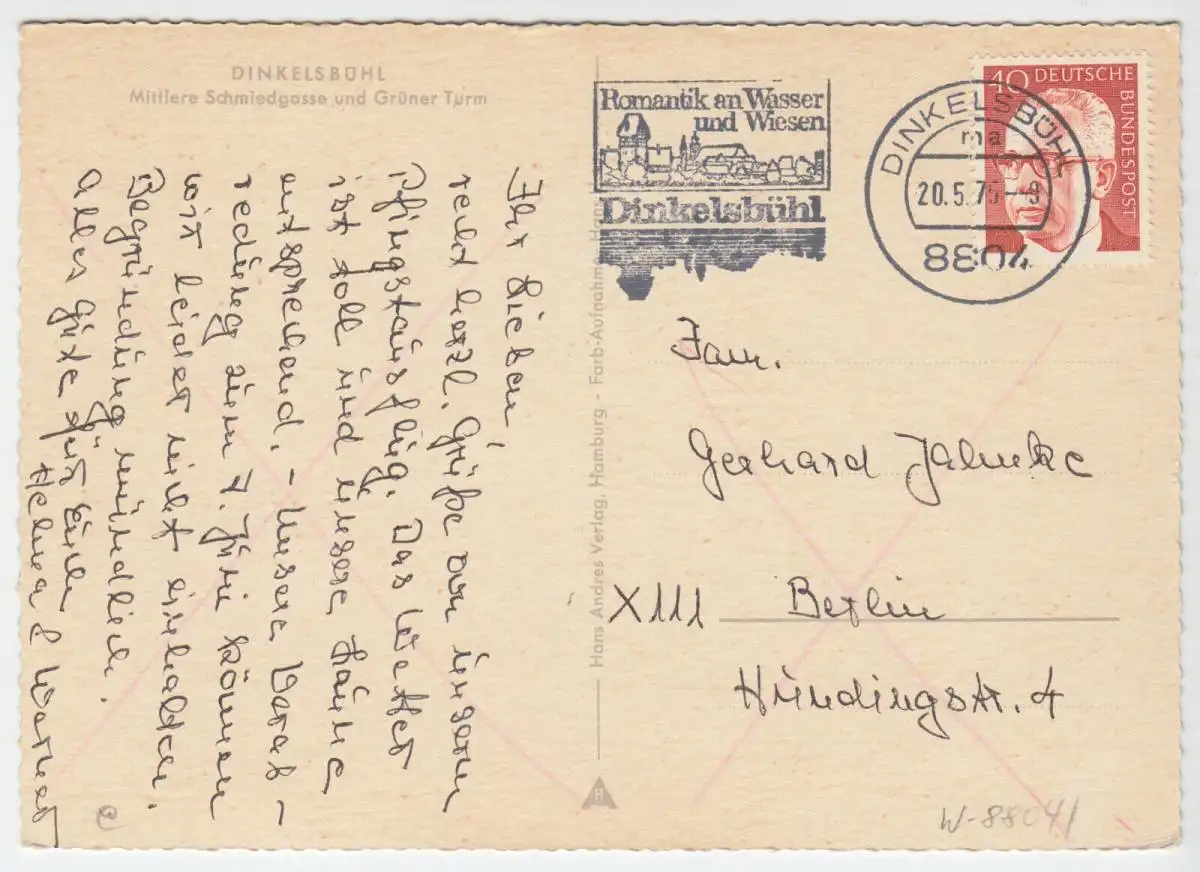 DINKELSBÜHL
Mittlere Schmiedgasse und Grüner Turm
Ihr Lieben,
seid herzl. Grüße von unserm
Pfingstausflug. Das Wetter
ist toll und unsere Laune
entsprechend. – Unsere Verab-
redung zum 7. Juni können
wir leider nicht einhalten.
Begründung mündlich.
Alles Gute für Euch
Helma & Werner
Hans Andres Verlag, Hamburg - Farb-Aufnahme
H
Romantik an Wasser
und Wiesen
Dinkelsbühl
DINKELSBÜHL
ma
20.5.75-9
8804
40 DEUTSCHE
BUNDESPOST
Fam.
Gerhard Jahnke
XIII Berlin
Hündingstr. 4
W-8804/
e